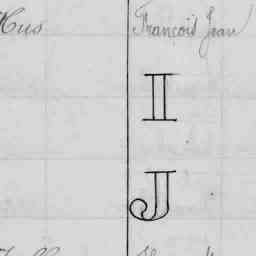 Hus François Jean
I
J